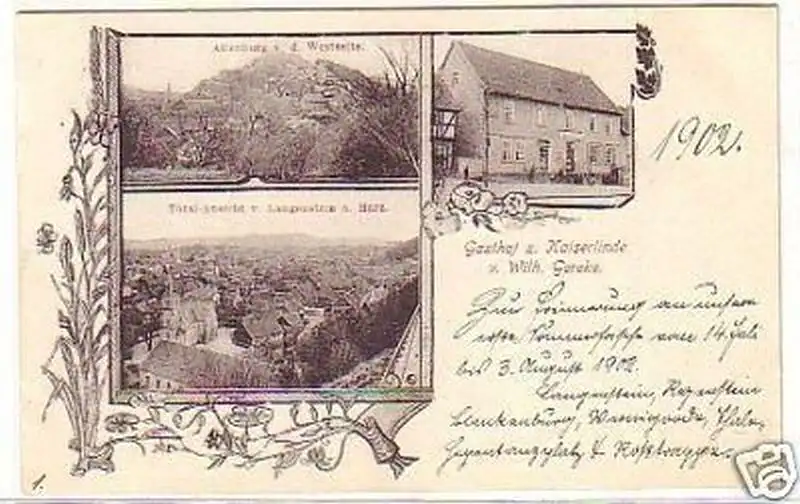 Altenburg v. d. Westseite.
Total-Ansicht v. Langenstein a. Harz.
Gasthof z. Kaiserlinde
v. Wilh. Gereke.
1902.
Zur Erinnerung an unsere
erste Sommerfrische vom 14. Juli
bis 3. August 1902.
Langenstein, Regenstein
Blankenburg, Wernigerode, Thale,
Hexentanzplatz & Roßtrappe.
1.
eBay